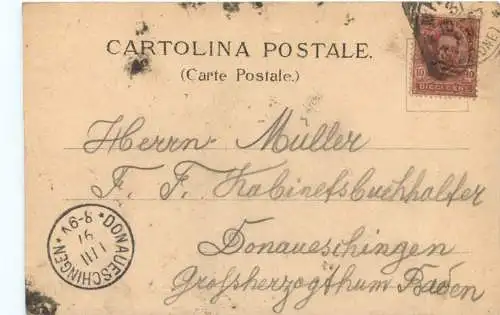 CARTOLINA POSTALE.
(Carte Postale.)
10 10
DIECI CENT
Herrn Muller
F. F. Kabinetsbuchhalter
Donaueschingen
Grofsherzogthum Baden
DONAUESCHINGEN
1 III
97
8-9V